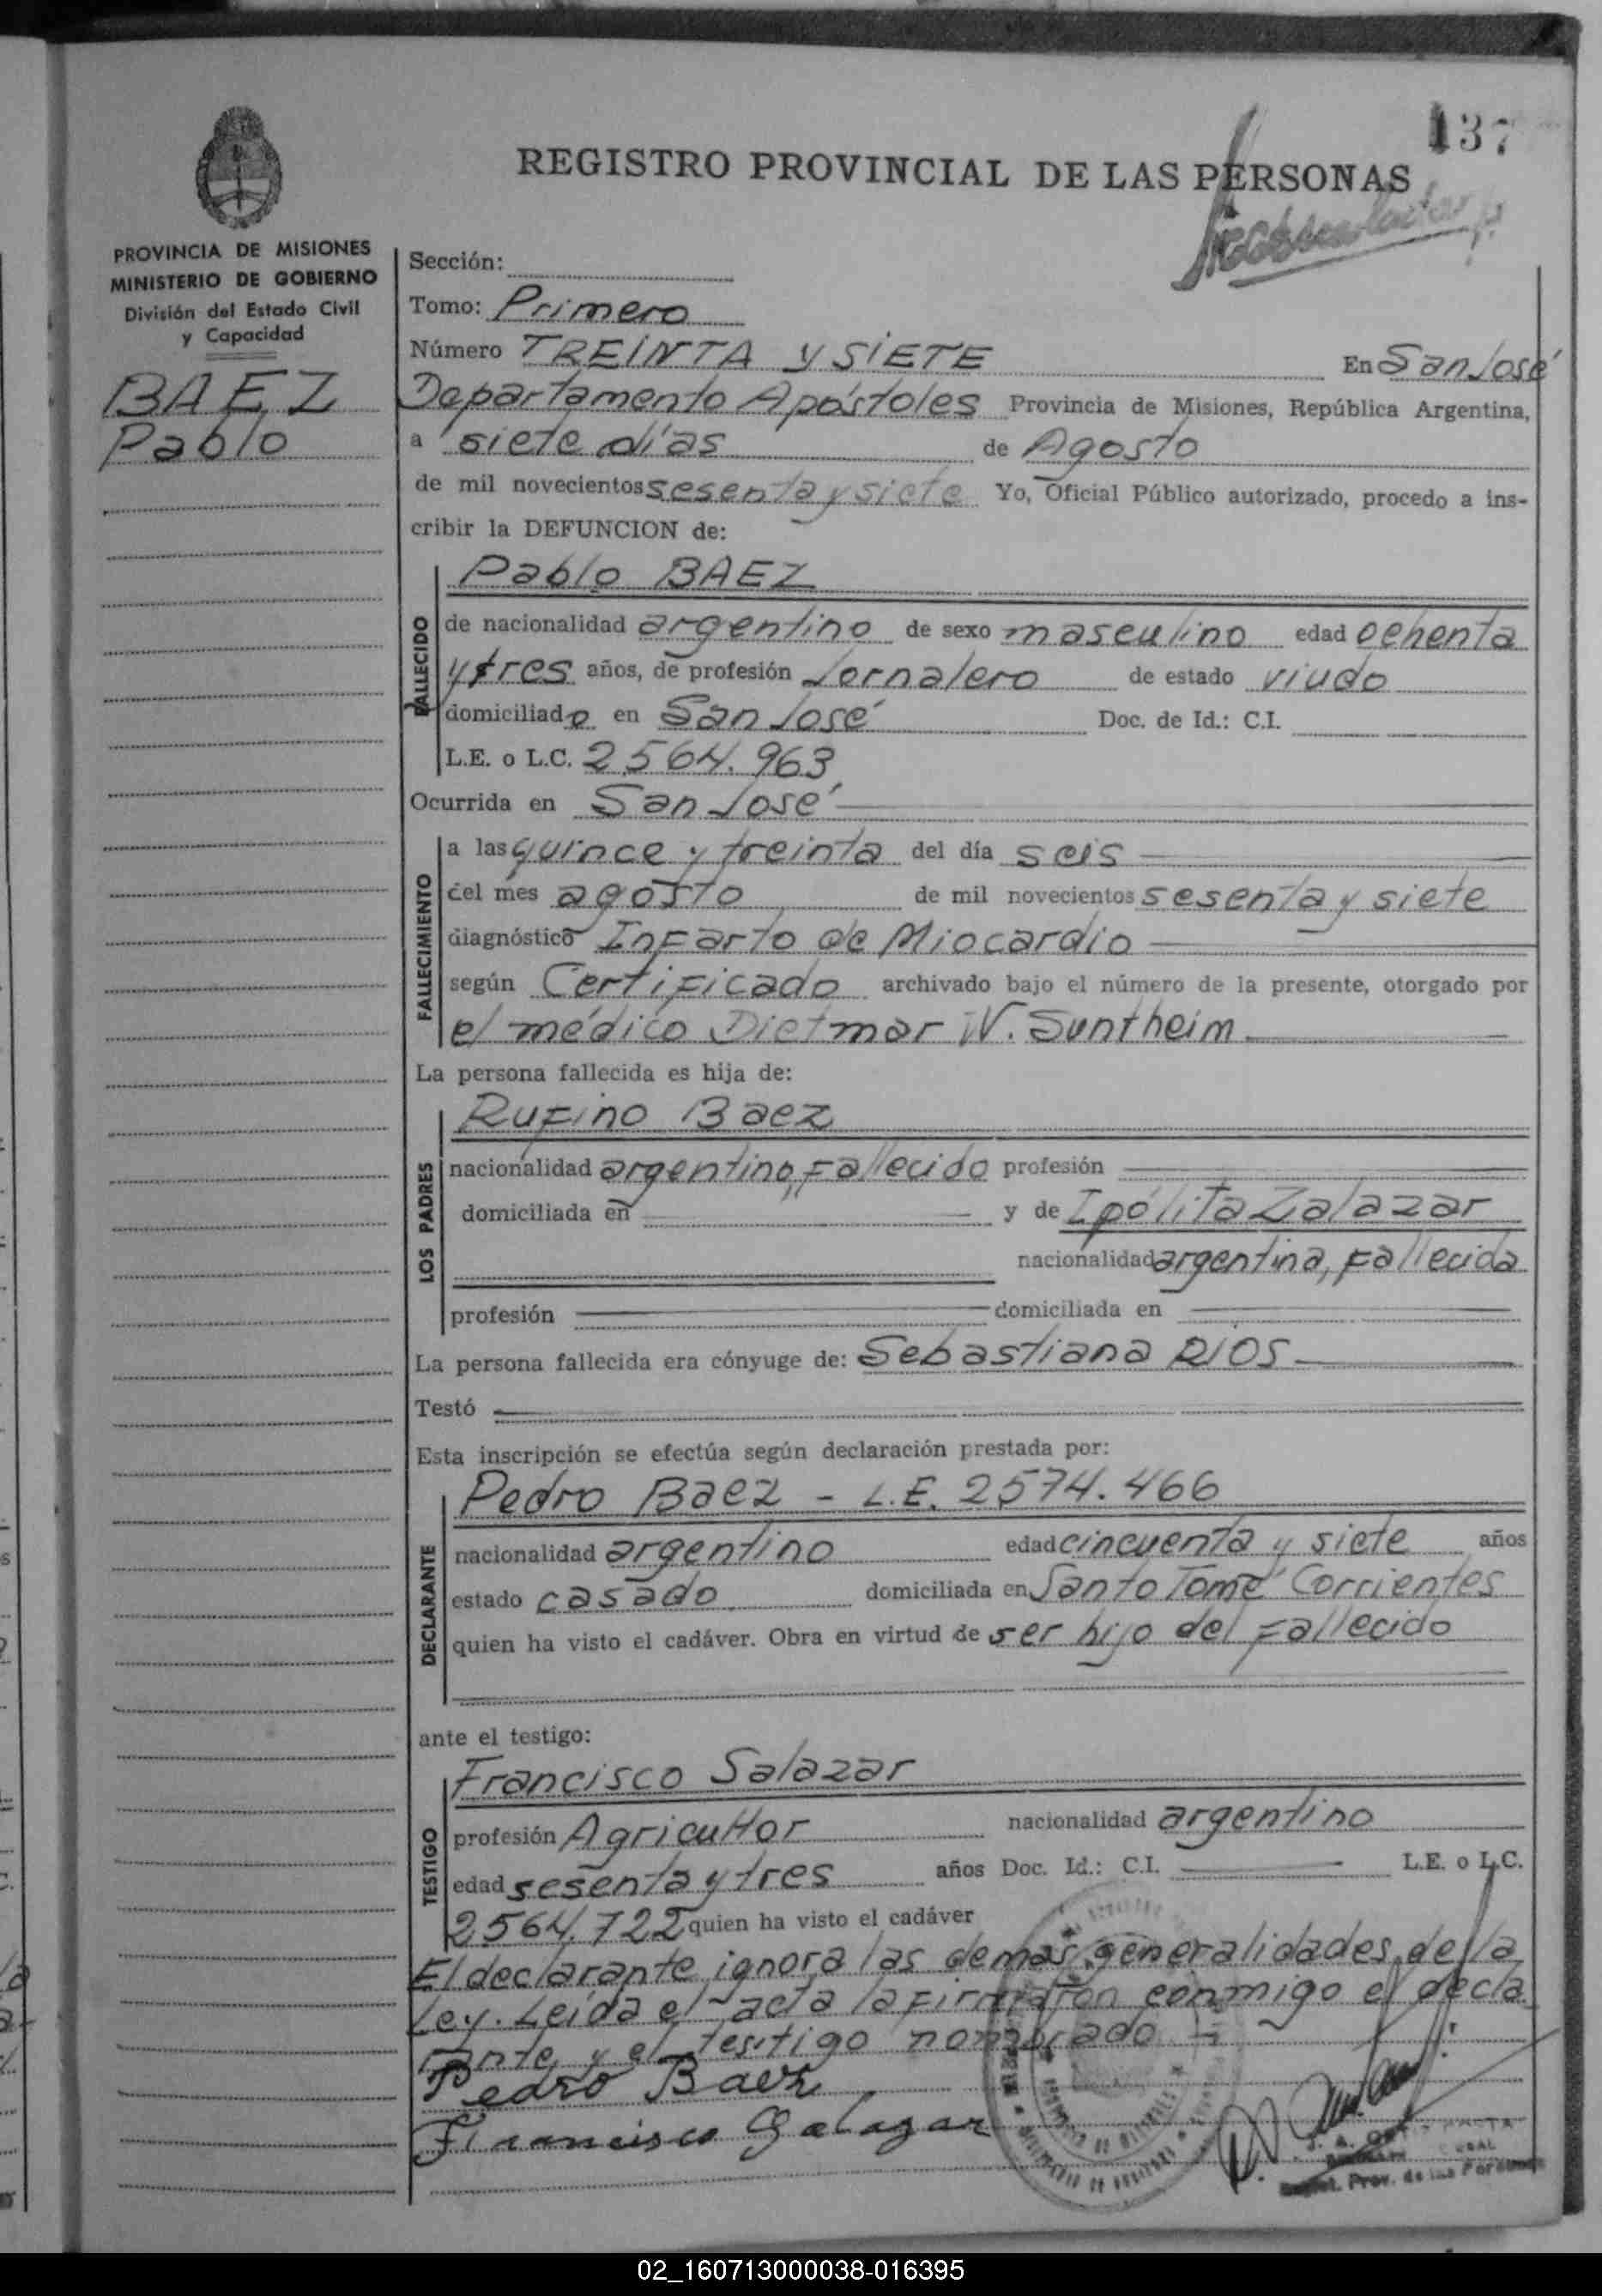 137
REGISTRO PROVINCIAL DE LAS PERSONAS
PROVINCIA DE MISIONES
MINISTERIO DE GOBIERNO
División del Estado Civil
y Capacidad
BAEZ
Pablo
Sección:
Tomo: Primero
Número TREINTA y SIETE En San José
Departamento Apóstoles Provincia de Misiones, República Argentina,
a siete días de Agosto
de mil novecientos sesenta y siete Yo, Oficial Público autorizado, procedo a ins-
cribir la DEFUNCION de:
Pablo BAEZ
FALLECIDO
de nacionalidad argentino de sexo masculino edad ochenta
y tres años, de profesión Jornalero de estado viudo
domiciliado en San José Doc. de Id.: C.I.
L.E. o L.C. 2564.963
Ocurrida en San José
FALLECIMIENTO
a las quince y treinta del día seis
del mes agosto de mil novecientos sesenta y siete
diagnóstico Infarto de Miocardio
según Certificado archivado bajo el número de la presente, otorgado por
el médico Dietmar W. Suntheim
La persona fallecida es hija de:
LOS PADRES
Rufino Baez
nacionalidad argentino, fallecido profesión
domiciliada en y de Ipólita Zalazar
nacionalidad argentina, fallecida
profesión domiciliada en
La persona fallecida era cónyuge de: Sebastiana RIOS
Testó
Esta inscripción se efectúa según declaración prestada por:
DECLARANTE
Pedro Baez - L.E. 2574.466
nacionalidad argentino edad cincuenta y siete años
estado casado domiciliada en Santo Tomé Corrientes
quien ha visto el cadáver. Obra en virtud de ser hijo del fallecido
ante el testigo:
TESTIGO
Francisco Salazar
profesión Agricultor nacionalidad argentino
edad sesenta y tres años Doc. Id.: C.I. L.E. o L.C.
2564.722 quien ha visto el cadáver
El declarante ignora las demas generalidades de la
Ley. Leída el acta la firmaron conmigo el decla
rante y el testigo nombrado
Pedro Baez
Francisco Salazar
J. A.
Regist. Prov. de las Personas
02_160713000038-016395